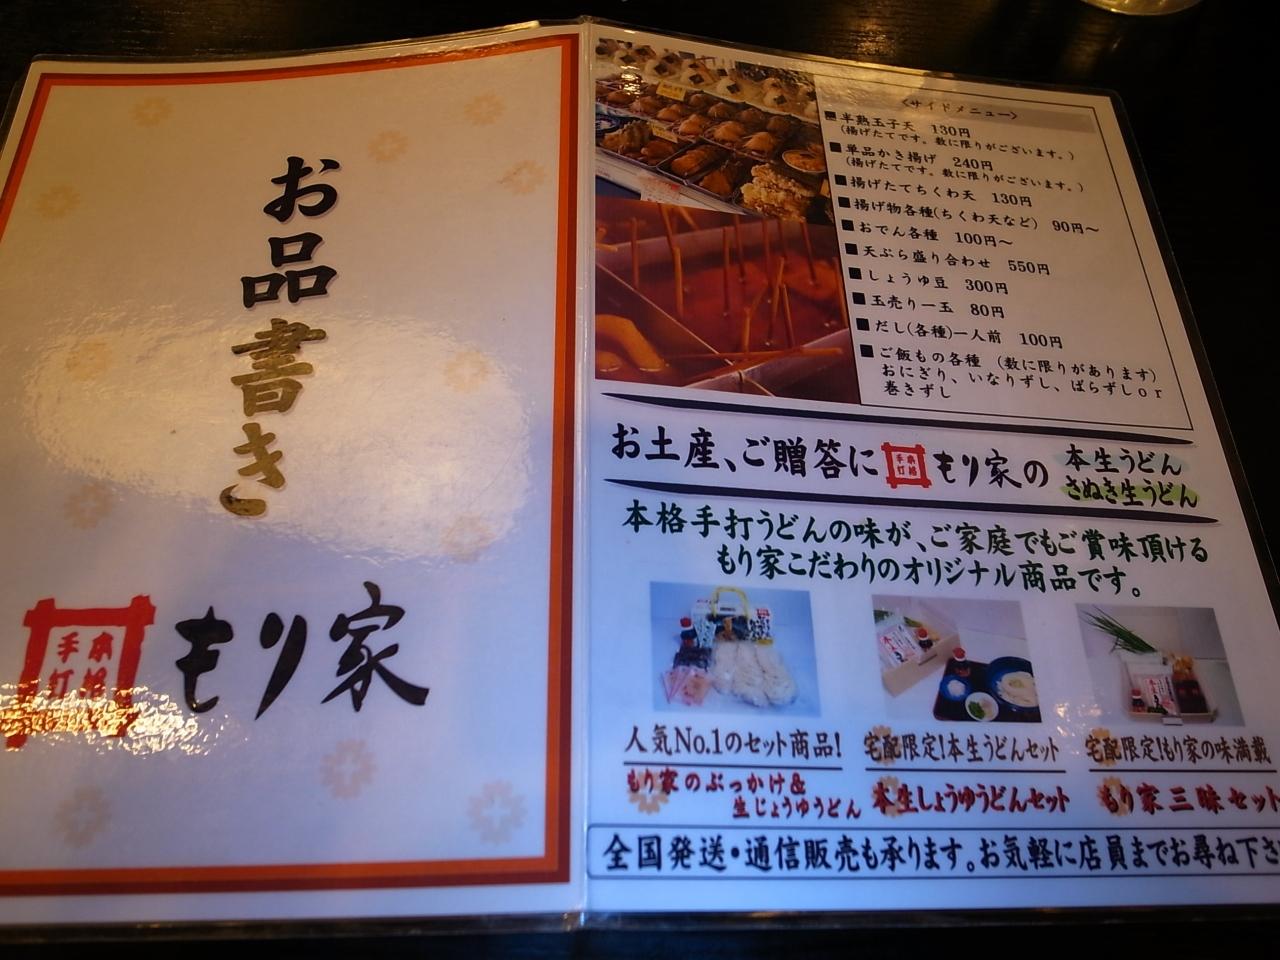 お品書き
本格
手打
もり家
<サイドメニュー>
■半熟玉子天 130円
(揚げたてです。数に限りがございます。)
■単品かき揚げ 240円
(揚げたてです。数に限りがございます。)
■揚げたてちくわ天 130円
■揚げ物各種(ちくわ天など) 90円~
■おでん各種 100円~
■天ぷら盛り合わせ 550円
■しょうゆ豆 300円
■玉売り一玉 80円
■だし(各種)一人前 100円
■ご飯もの各種 (数に限りがあります)
おにぎり、いなりずし、ばらずしor
巻きずし
お土産、ご贈答に 本格手打 もり家の 本生うどん
さぬき生うどん
本格手打うどんの味が、ご家庭でもご賞味頂ける
もり家こだわりのオリジナル商品です。
人気No.1のセット商品!
もり家のぶっかけ&
生じょうゆうどん
宅配限定!本生うどんセット
本生しょうゆうどんセット
宅配限定!もり家の味満載
もり家三昧セット
全国発送・通信販売も承ります。お気軽に店員までお尋ね下さ